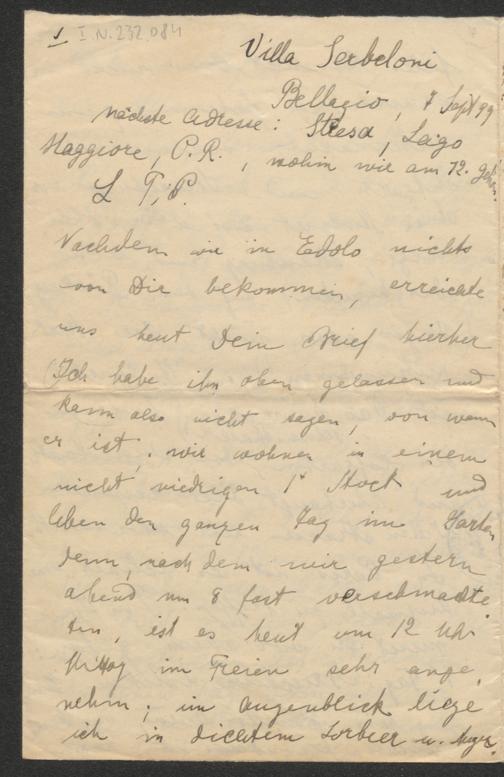 1 I.N. 232.084
Villa Serbeloni
Bellagio, 7 Sept 99
nächste Adresse: Stresa, Lago
Maggiore, P.R., wohin wir am 12. gehen.
L. P.
Nachdem wir in Edolo nichts
von Dir bekommen, erreichte
uns heut Dein Brief hierher
(Ich habe ihn oben gelassen und
kann also nicht sagen, von wann
er ist; wir wohnen in einem
nicht niedrigen 1. Stock und
leben den ganzen Tag im Garten
denn, nach dem wir gestern
abend um 8 fast verschmachte-
ten, ist es heut um 12 Uhr
Mittag im Freien sehr ange-
nehm; im Augenblick liege
ich in dichtem Lorbeer u.